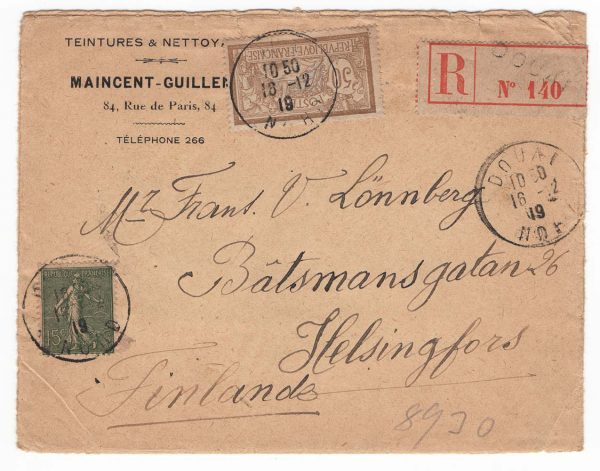 TEINTURES & NETTOY
MAINCENT-GUILLE
84, Rue de Paris, 84
TÉLÉPHONE 266
REPUBLIQUE FRANÇAISE
50c
10 50
16 -12
19
R
DOUAI
Nº 140
DOUAI
10 50
16 -12
19
NORD
Mr Frans. V. Lönnberg
Båtsmansgatan 26
Helsingfors
Finlande
REPUBLIQUE FRANÇAISE
15c
19
NORD
8930